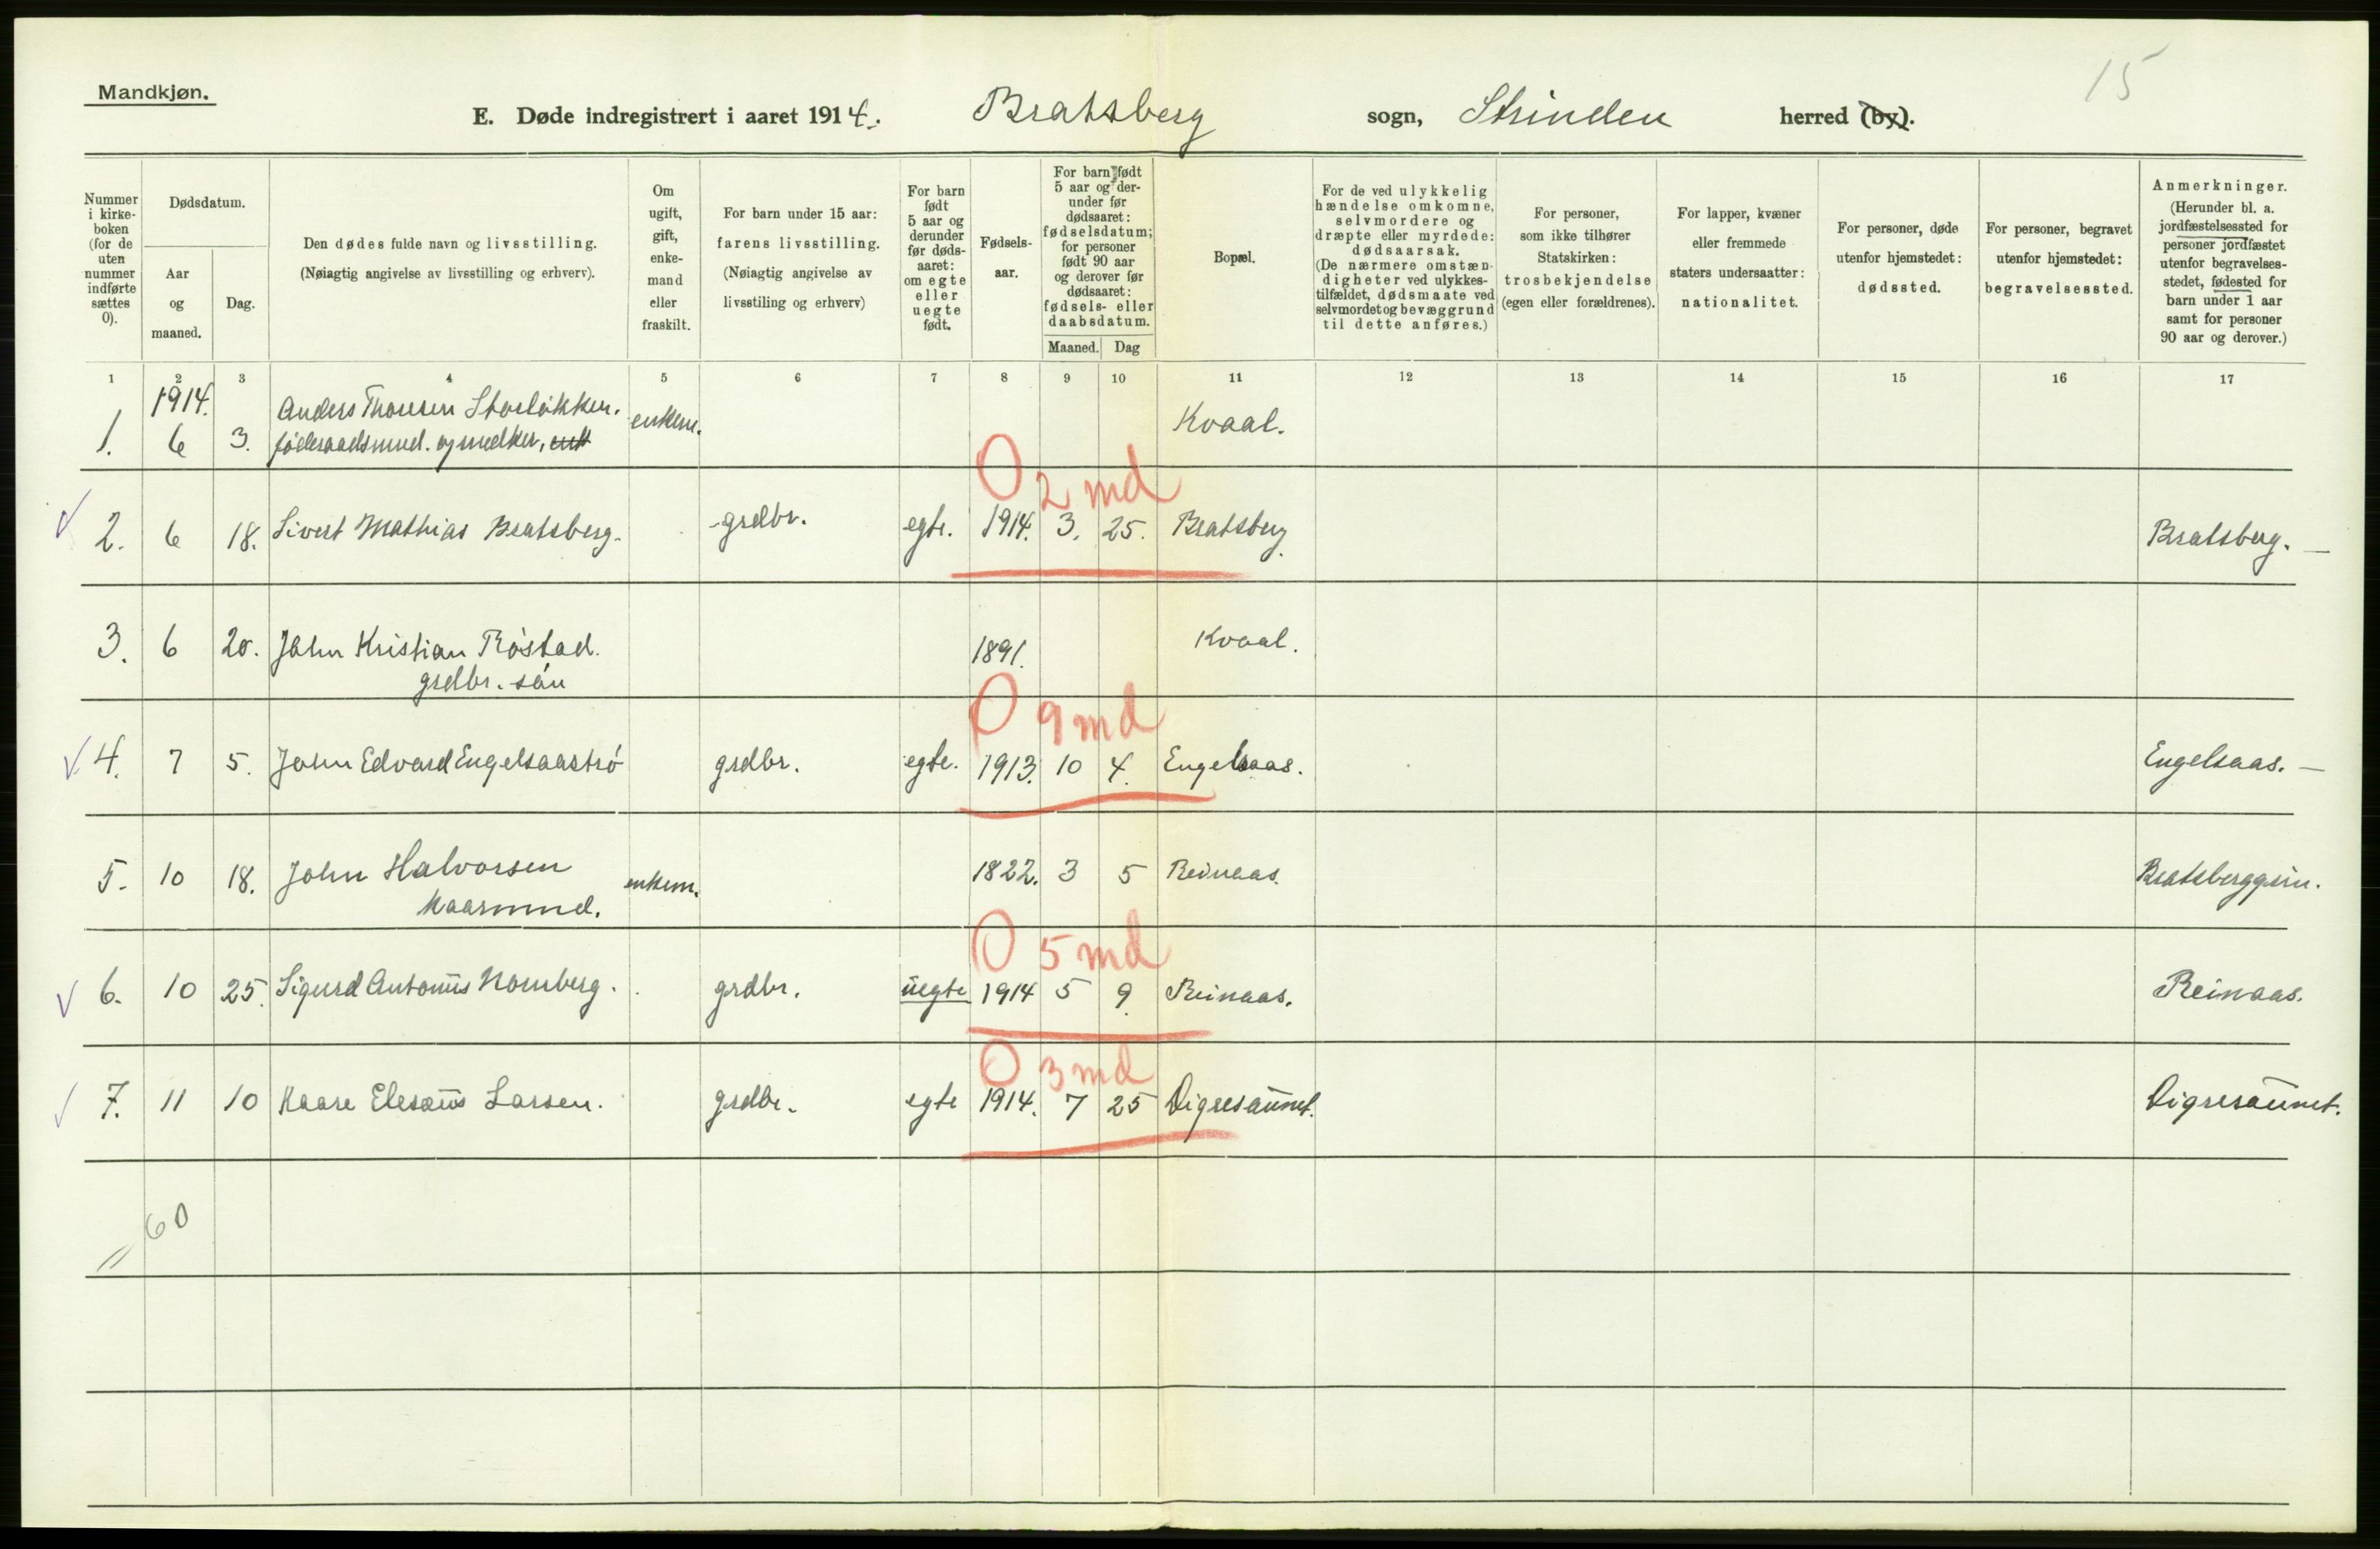 15
Mandkjøn.
E. Døde indregistrert i aaret 1914. Bratsberg sogn, Strinden herred (by).
Nummer i kirke-boken (for de uten nummer indførte sættes 0).
Dødsdatum.
Aar og maaned.
Dag.
Den dødes fulde navn og livsstilling.
(Nøiagtig angivelse av livsstilling og erhverv).
Om ugift, gift, enke-mand eller fraskilt.
For barn under 15 aar: farens livsstilling.
(Nøiagtig angivelse av livsstiling og erhverv)
For barn født 5 aar og derunder før døds-aaret: om egte eller uegte født.
Fødsels-aar.
For barn født 5 aar og der-under før dødsaaret: fødselsdatum; for personer født 90 aar og derover før dødsaaret: fødsels- eller daabsdatum.
Maaned. Dag
Bopæl.
For de ved ulykkelig hændelse omkomne, selvmordere og dræpte eller myrdede: dødsaarsak.
(De nærmere omstæn-digheter ved ulykkes-tilfældet, dødsmaate ved selvmordet og bevæggrund til dette anføres.)
For personer, som ikke tilhører Statskirken: trosbekjendelse (egen eller forældrenes).
For lapper, kvæner eller fremmede staters undersaatter: nationalitet.
For personer, døde utenfor hjemstedet: dødssted.
For personer, begravet utenfor hjemstedet: begravelsessted.
Anmerkninger.
(Herunder bl. a. jordfæstelsessted for personer jordfæstet utenfor begravelses-stedet, fødested for barn under 1 aar samt for personer 90 aar og derover.)
1 2 3 4 5 6 7 8 9 10 11 12 13 14 15 16 17
1914.
Anders Thomesen Storløkken. enkem. Kvaal.
1. 6 3. føderaadsmnd.
0 2 md
2. 6 18. Sivert Mathias Bratsberg. grdbr. egte. 1914. 3. 25. Bratsberg Bratsberg. —
3. 6 20. John Kristian Røstad. 1891. Kvaal.
grdbr. søn
0 9 md
4. 7 5. John Edvard Engelsaastrø grdbr. egte. 1913. 10 4. Engelsaas. Engelsaas. —
5. 10 18. John Halvorsen enkem. 1822. 3 5 Reinaas. Bratsberggrin.
kaarmnd.
0 5 md
6. 10 25. Sigurd Antonius Nornberg. grdbr. uegte 1914 5 9. Reinaas. Reinaas.
0 3 md
7. 11 10 Kaare Elesæus Larsen. grdbr. egte 1914. 7 25 Digresaunet. Digresaunet.
60